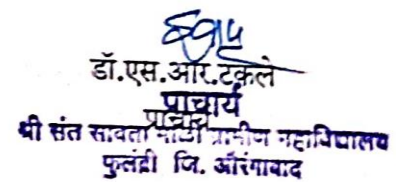 डॉ.एस.आर.टकले
प्राचार्य
प्राचार्य
श्री संत सावता माळी ग्रामीण महाविद्यालय
फुलंब्री जि. औरंगाबाद